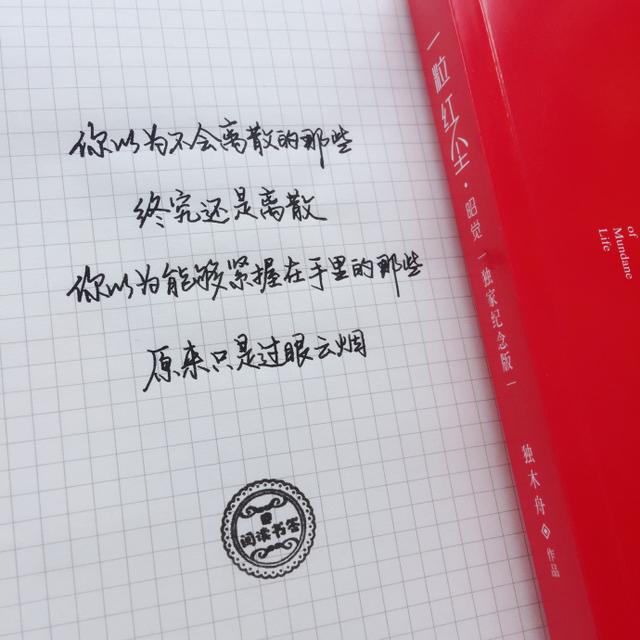 你以为不会离散的那些
终究还是离散
你以为能够紧握在手里的那些
原来只是过眼云烟
阅读书签
一粒红尘·昭觉 |独家纪念版|
独木舟 作品
of
Mundane
Life